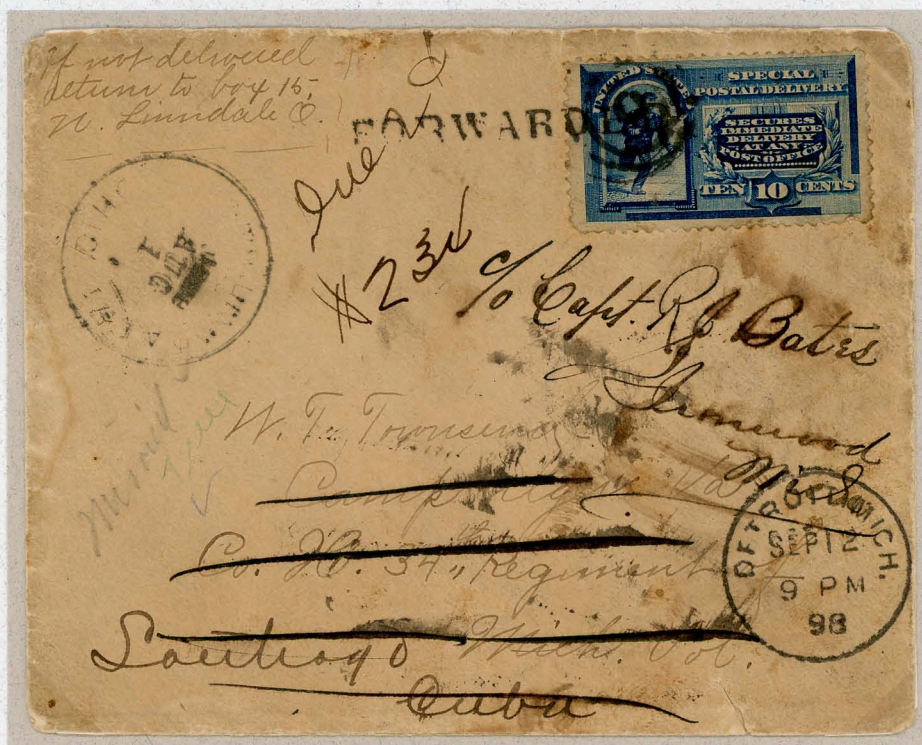 If not delivered
return to box 15,
N. Linndale O.
FORWARDED
UNITED STATES
SPECIAL
POSTAL DELIVERY
SECURES
IMMEDIATE
DELIVERY
AT ANY
POST OFFICE
TEN 10 CENTS
Due
$2
c/o Capt. R. J. Bates
Ironwood
Mich
AUG
1
W. T. Townsend
Camp Alger Va
Co. H. 34" Regiment
Mich. Vol.
Santiago
Cuba
DETROIT, MICH.
SEP 12
9 PM
98